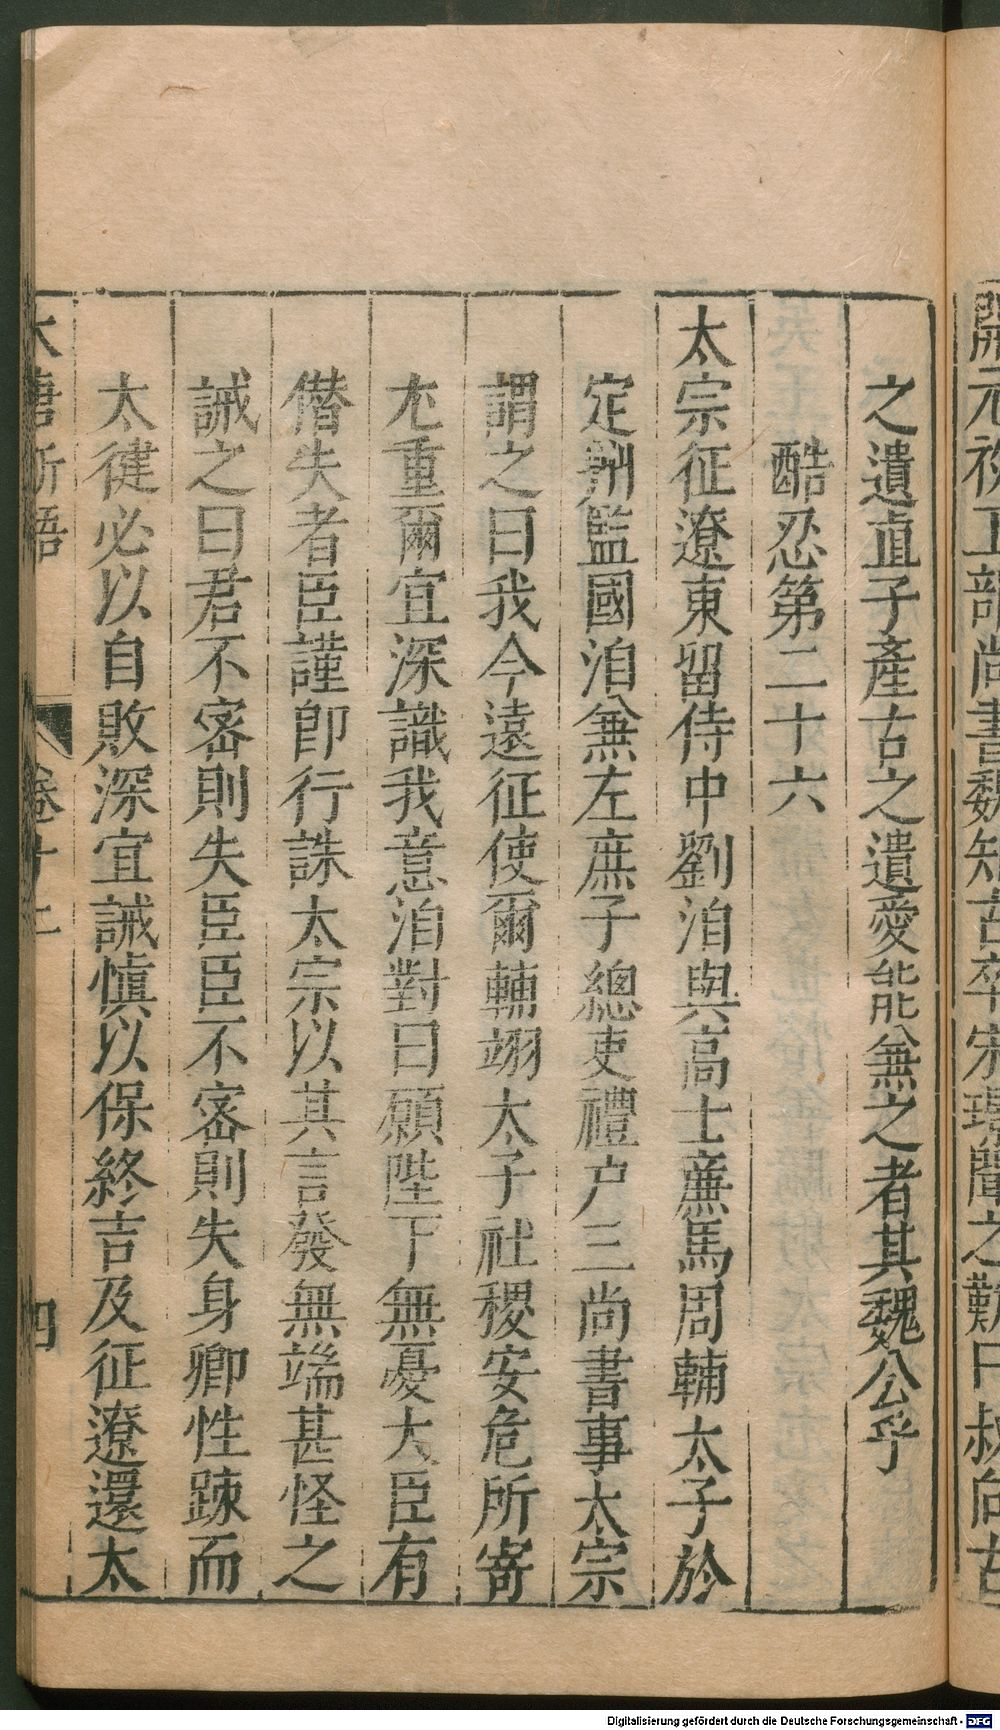 開元初工部尚書魏知古卒宋璟聞之歎曰叔向古
之遺直子產古之遺愛能兼之者其魏公乎
酷忍第二十六
太宗征遼東留侍中劉洎與高士廉馬周輔太子於
定州監國洎兼左庶子總吏禮户三尚書事太宗
謂之曰我今遠征使爾輔翊太子社稷安危所寄
尤重爾宜深識我意洎對曰願陛下無憂大臣有
僭失者臣謹即行誅太宗以其言發無端甚怪之
誡之曰君不密則失臣臣不密則失身卿性踈而
太健必以自敗深宜誡慎以保終吉及征遼還太
大唐新語
卷十二
四
Digitalisierung gefördert durch die Deutsche Forschungsgemeinschaft - DFG